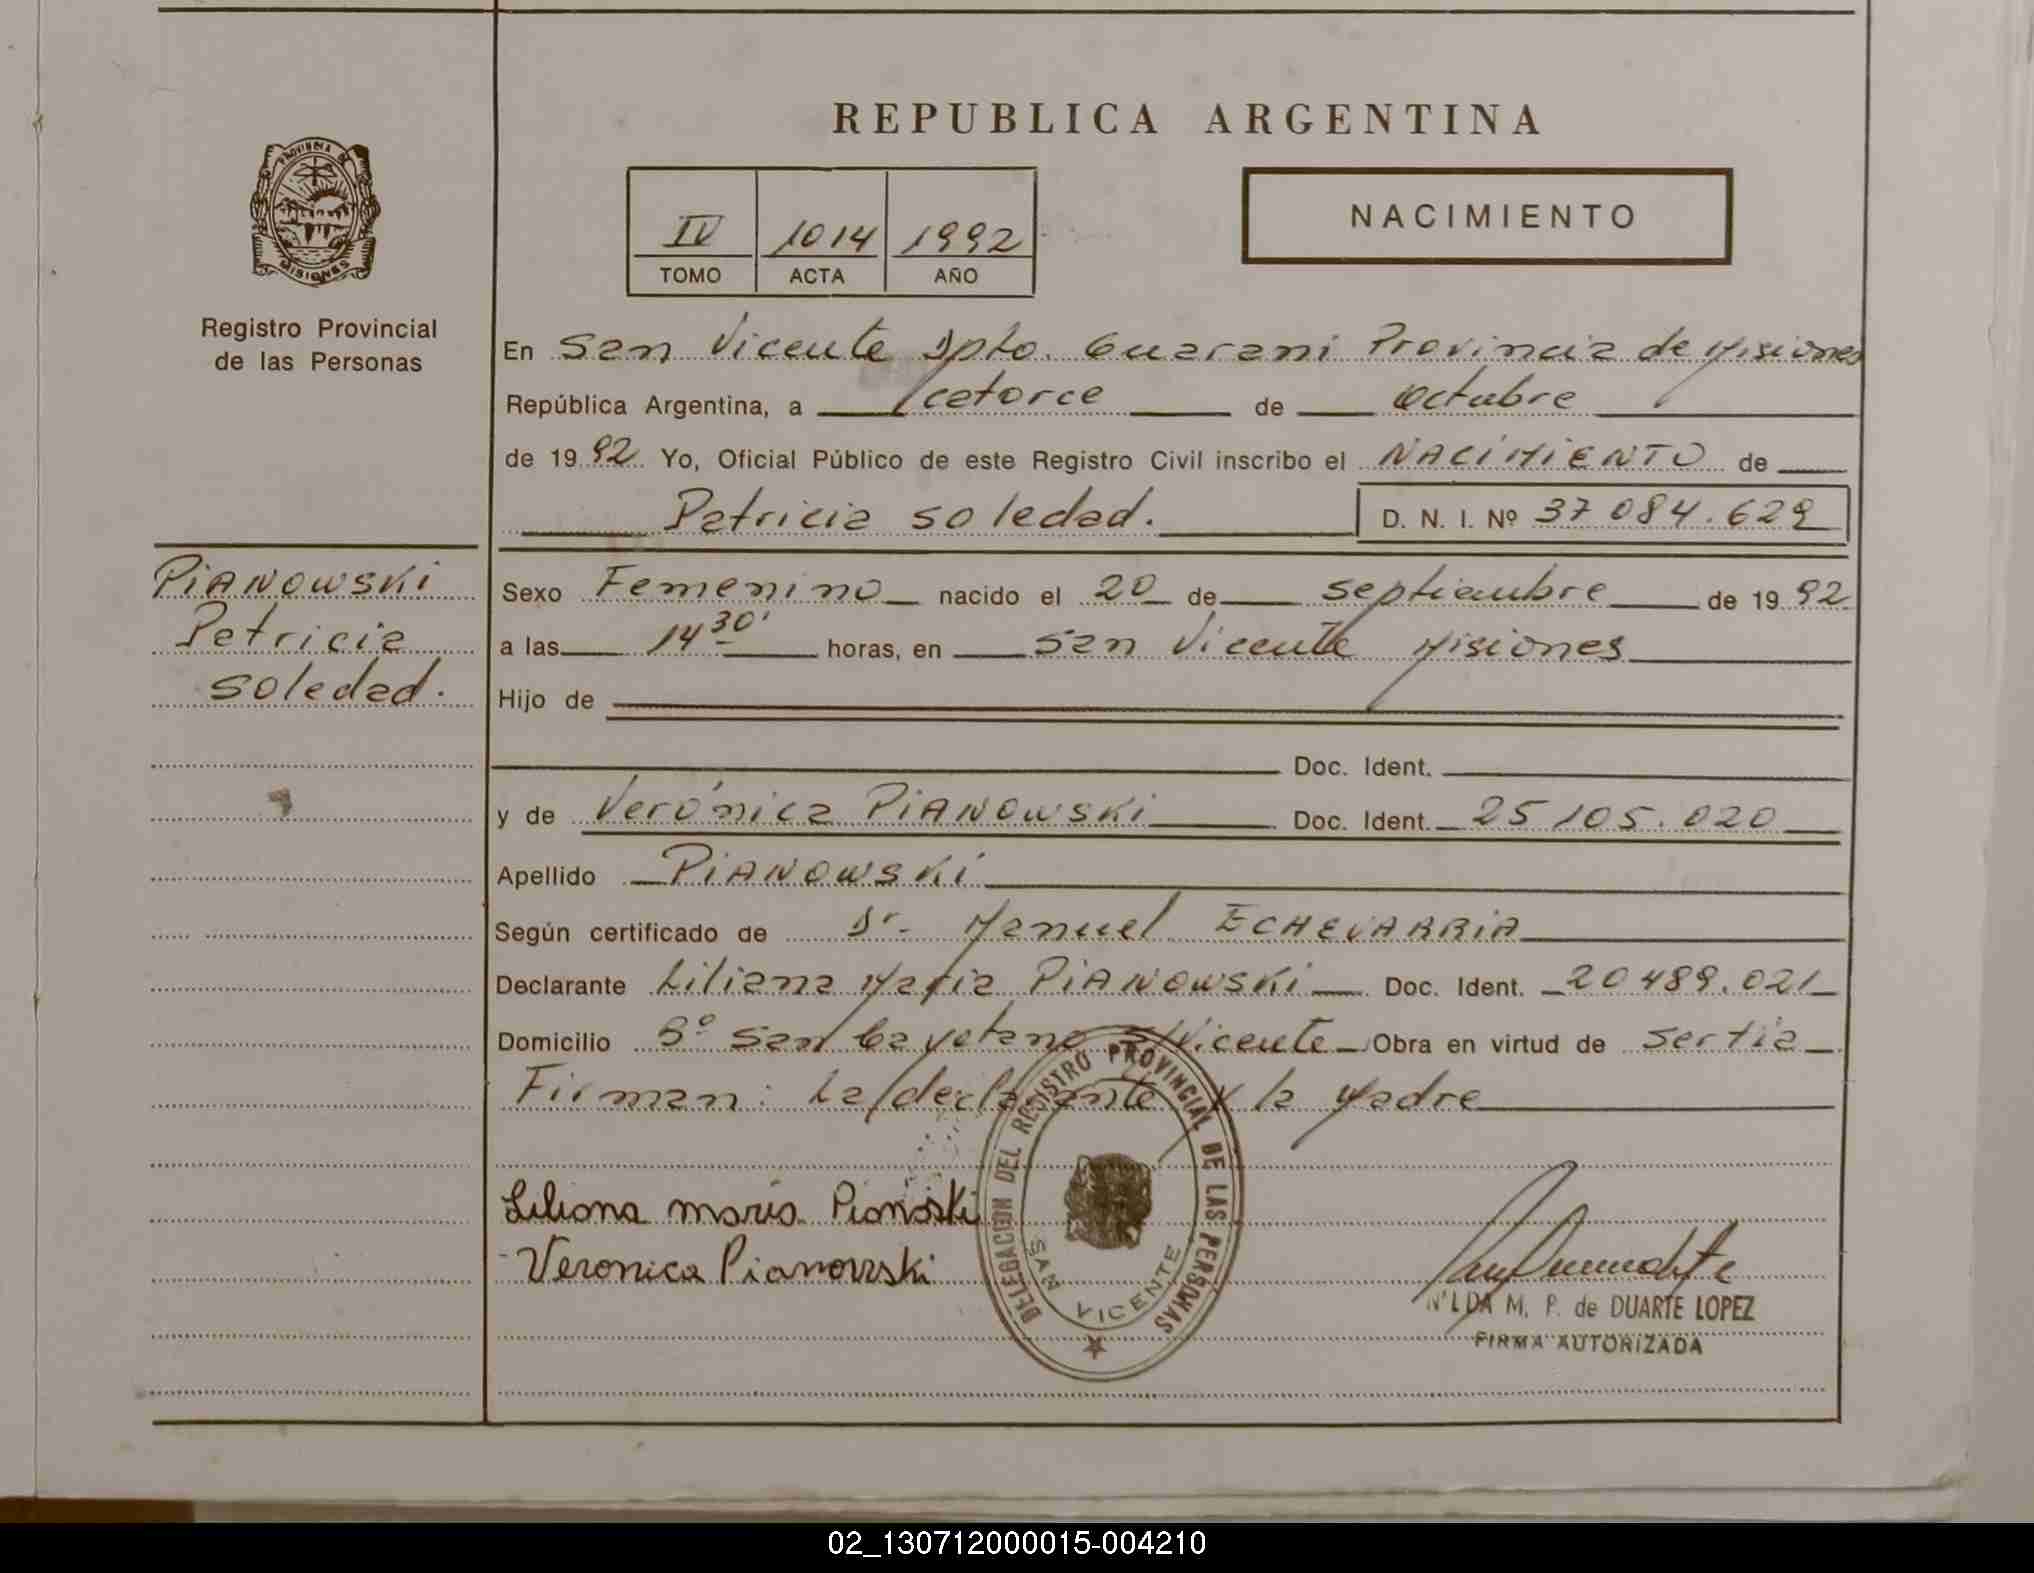 REPUBLICA ARGENTINA
PROVINCIA DE
MISIONES
Registro Provincial
de las Personas
IV 1014 1992
TOMO ACTA AÑO
NACIMIENTO
En San Vicente Dpto. Guarani Provincia de Misiones
República Argentina, a catorce de octubre
de 1992 Yo, Oficial Público de este Registro Civil inscribo el NACIMIENTO de
Patricia Soledad. D. N. I. Nº 37 084.629
PIANOWSKI
Patricia
Soledad.
Sexo Femenino nacido el 20 de septiembre de 1992
a las 14 30' horas, en San Vicente Misiones
Hijo de
Doc. Ident.
y de Verónica PIANOWSKI Doc. Ident. 25 105.020
Apellido PIANOWSKI
Según certificado de Dr. Manuel ECHEVARRIA
Declarante Liliana Maria PIANOWSKI Doc. Ident. 20 489.021
Domicilio Bº San Cayetano S/Vicente Obra en virtud de
Firman: La declarante y la Madre
DELEGACION DEL REGISTRO PROVINCIAL DE LAS PERSONAS
SAN VICENTE
Liliana maria Pianoski
Veronica Pianowski
NILDA M. P. de DUARTE LOPEZ
FIRMA AUTORIZADA
02_130712000015-004210